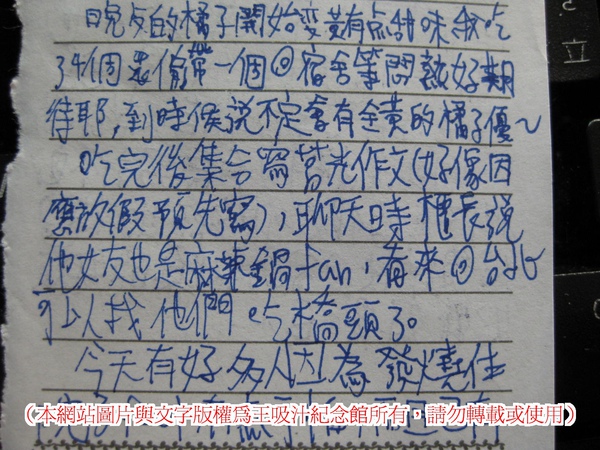 晚点的橘子開始變黃有点甜味我吃
3 4個還偷帶一個@宿舍等悶熟好期
待耶,到時候說不定會有金黃的橘子優~
吃完後集合寫莒光作文(好像因
應放假預先寫),聊天時 槿長說
他女友也是麻辣鍋fan,看來@台北
可以找他們吃橋頭了。
今天有好多人因為發燒住
(本網站圖片與文字版權為王吸汁紀念館所有,請勿轉載或使用)
立